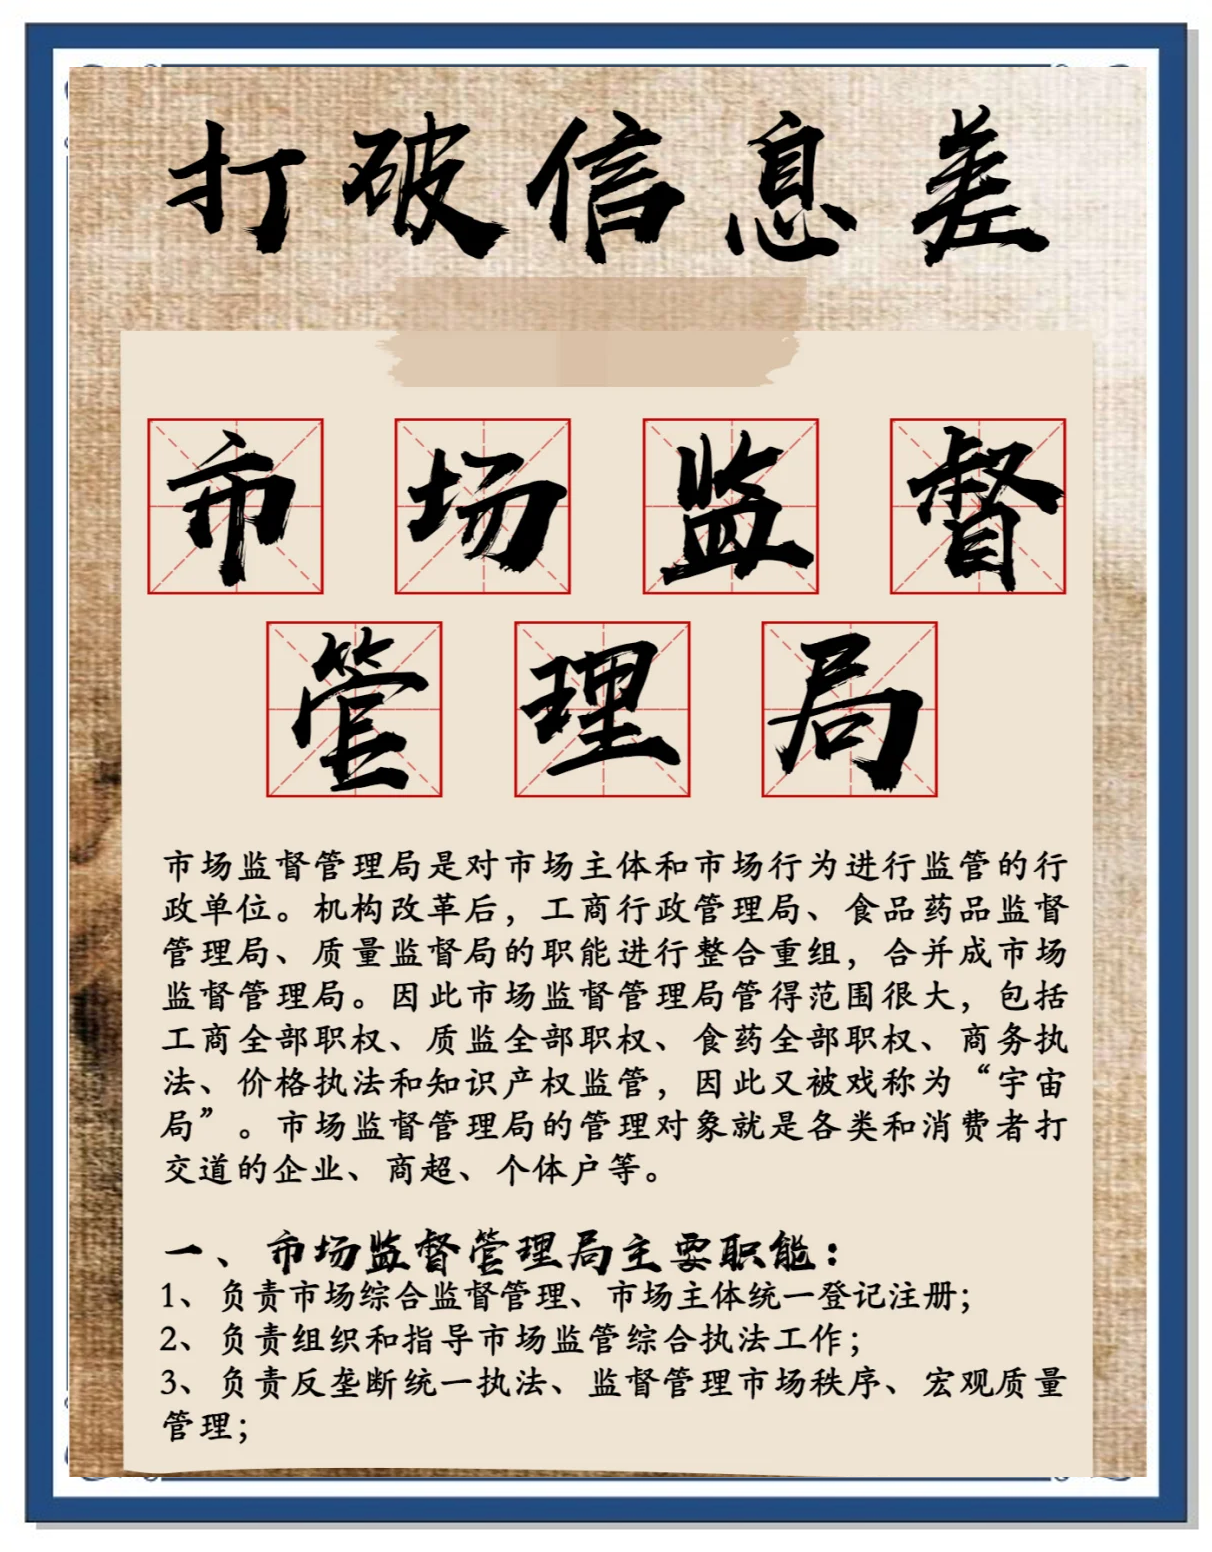 打破信息差
市场监督
管理局
市场监督管理局是对市场主体和市场行为进行监管的行
政单位。机构改革后，工商行政管理局、食品药品监督
管理局、质量监督局的职能进行整合重组，合并成市场
监督管理局。因此市场监督管理局管得范围很大，包括
工商全部职权、质监全部职权、食药全部职权、商务执
法、价格执法和知识产权监管，因此又被戏称为“宇宙
局”。市场监督管理局的管理对象就是各类和消费者打
交道的企业、商超、个体户等。
一、市场监督管理局主要职能：
1、负责市场综合监督管理、市场主体统一登记注册；
2、负责组织和指导市场监管综合执法工作；
3、负责反垄断统一执法、监督管理市场秩序、宏观质量
管理；